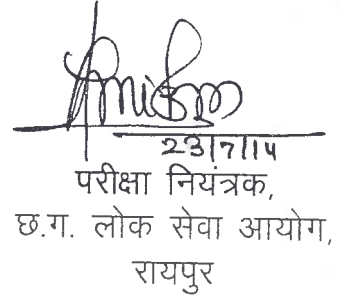 23/7/14
परीक्षा नियंत्रक,
छ.ग. लोक सेवा आयोग,
रायपुर